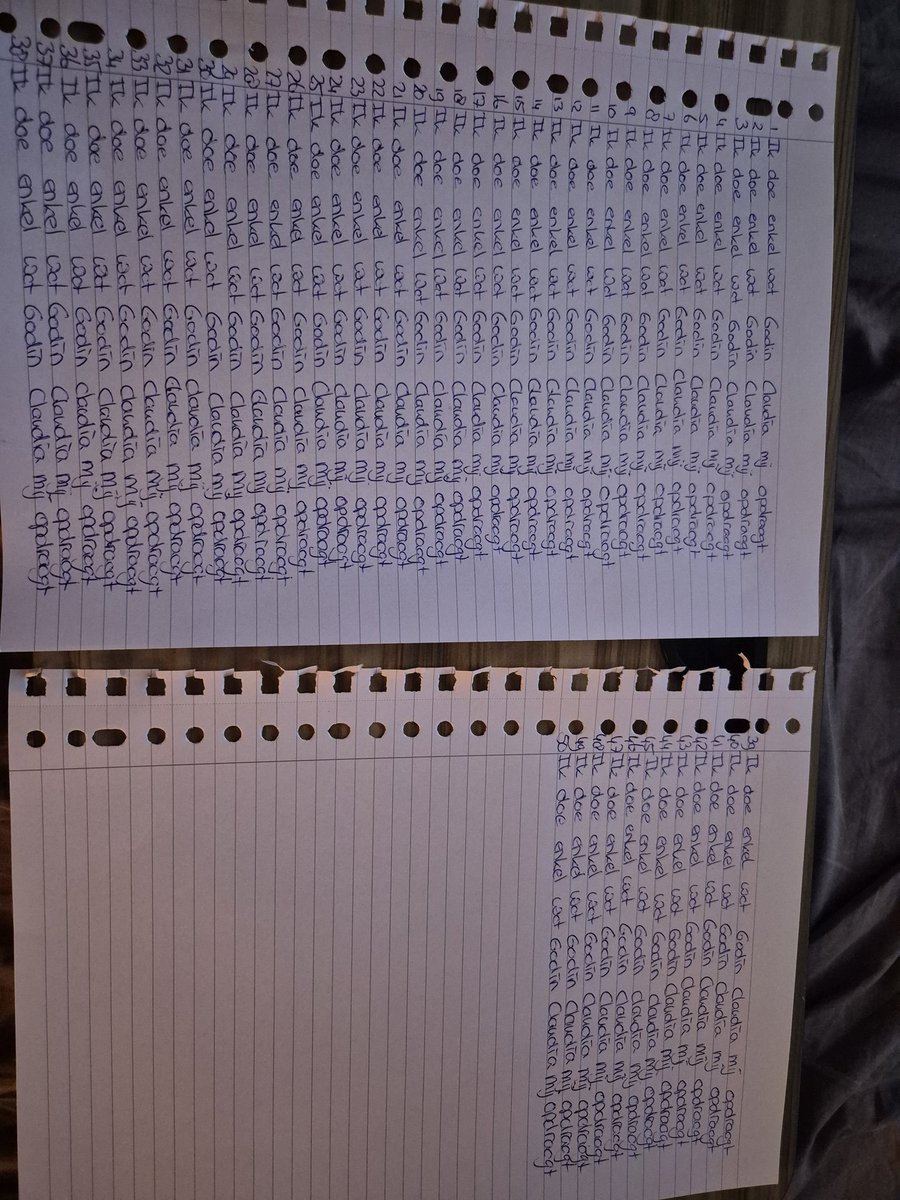 1 Ik doe enkel wat Godin Claudia mij opdraagt
2 Ik doe enkel wat Godin Claudia mij opdraagt
3 Ik doe enkel wat Godin Claudia mij opdraagt
4 Ik doe enkel wat Godin Claudia mij opdraagt
5 Ik doe enkel wat Godin Claudia mij opdraagt
6 Ik doe enkel wat Godin Claudia mij opdraagt
7 Ik doe enkel wat Godin Claudia mij opdraagt
8 Ik doe enkel wat Godin Claudia mij opdraagt
9 Ik doe enkel wat Godin Claudia mij opdraagt
10 Ik doe enkel wat Godin Claudia mij opdraagt
11 Ik doe enkel wat Godin Claudia mij opdraagt
12 Ik doe enkel wat Godin Claudia mij opdraagt
13 Ik doe enkel wat Godin Claudia mij opdraagt
14 Ik doe enkel wat Godin Claudia mij opdraagt
15 Ik doe enkel wat Godin Claudia mij opdraagt
16 Ik doe enkel wat Godin Claudia mij opdraagt
17 Ik doe enkel wat Godin Claudia mij opdraagt
18 Ik doe enkel wat Godin Claudia mij opdraagt
19 Ik doe enkel wat Godin Claudia mij opdraagt
20 Ik doe enkel wat Godin Claudia mij opdraagt
21 Ik doe enkel wat Godin Claudia mij opdraagt
22 Ik doe enkel wat Godin Claudia mij opdraagt
23 Ik doe enkel wat Godin Claudia mij opdraagt
24 Ik doe enkel wat Godin Claudia mij opdraagt
25 Ik doe enkel wat Godin Claudia mij opdraagt
26 Ik doe enkel wat Godin Claudia mij opdraagt
27 Ik doe enkel wat Godin Claudia mij opdraagt
28 Ik doe enkel wat Godin Claudia mij opdraagt
29 Ik doe enkel wat Godin Claudia mij opdraagt
30 Ik doe enkel wat Godin Claudia mij opdraagt
31 Ik doe enkel wat Godin Claudia mij opdraagt
32 Ik doe enkel wat Godin Claudia mij opdraagt
33 Ik doe enkel wat Godin Claudia mij opdraagt
34 Ik doe enkel wat Godin Claudia mij opdraagt
35 Ik doe enkel wat Godin Claudia mij opdraagt
36 Ik doe enkel wat Godin Claudia mij opdraagt
37 Ik doe enkel wat Godin Claudia mij opdraagt
38 Ik doe enkel wat Godin Claudia mij opdraagt
39 Ik doe enkel wat Godin Claudia mij opdraagt
40 Ik doe enkel wat Godin Claudia mij opdraagt
41 Ik doe enkel wat Godin Claudia mij opdraagt
42 Ik doe enkel wat Godin Claudia mij opdraagt
43 Ik doe enkel wat Godin Claudia mij opdraagt
44 Ik doe enkel wat Godin Claudia mij opdraagt
45 Ik doe enkel wat Godin Claudia mij opdraagt
46 Ik doe enkel wat Godin Claudia mij opdraagt
47 Ik doe enkel wat Godin Claudia mij opdraagt
48 Ik doe enkel wat Godin Claudia mij opdraagt
49 Ik doe enkel wat Godin Claudia mij opdraagt
50 Ik doe enkel wat Godin Claudia mij opdraagt